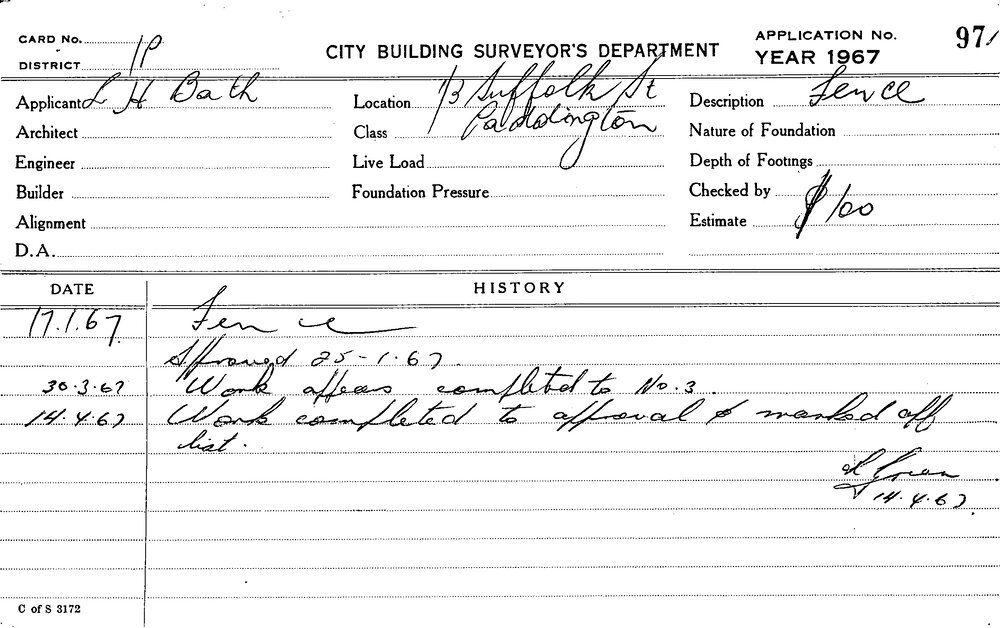 CARD No.
DISTRICT 1P
CITY BUILDING SURVEYOR'S DEPARTMENT
APPLICATION No. 97/
YEAR 1967
Applicant L H Bath
Location 1/3 Suffolk St
Paddington
Description Fence
Architect
Class
Nature of Foundation
Engineer
Live Load
Depth of Footings
Builder
Foundation Pressure
Checked by
Alignment
Estimate $100
D.A.
DATE HISTORY
17.1.67 Fence
Approved 25-1-67.
30.3.67 Work appears completed to No. 3.
14.4.67 Work completed to approval & marked off
list.
14.4.67.
C of S 3172